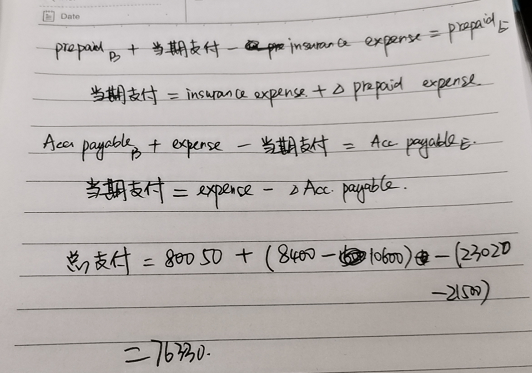 Date
prepaid B + 当期支付 - insurance expense = prepaid E
当期支付 = insurance expense + Δ prepaid expense.
Acca payable B + expense - 当期支付 = Acc payable E.
当期支付 = expense - Δ Acc. payable.
总支付 = 80050 + (8400 - 10600) - (23020
-21500)
= 76330.